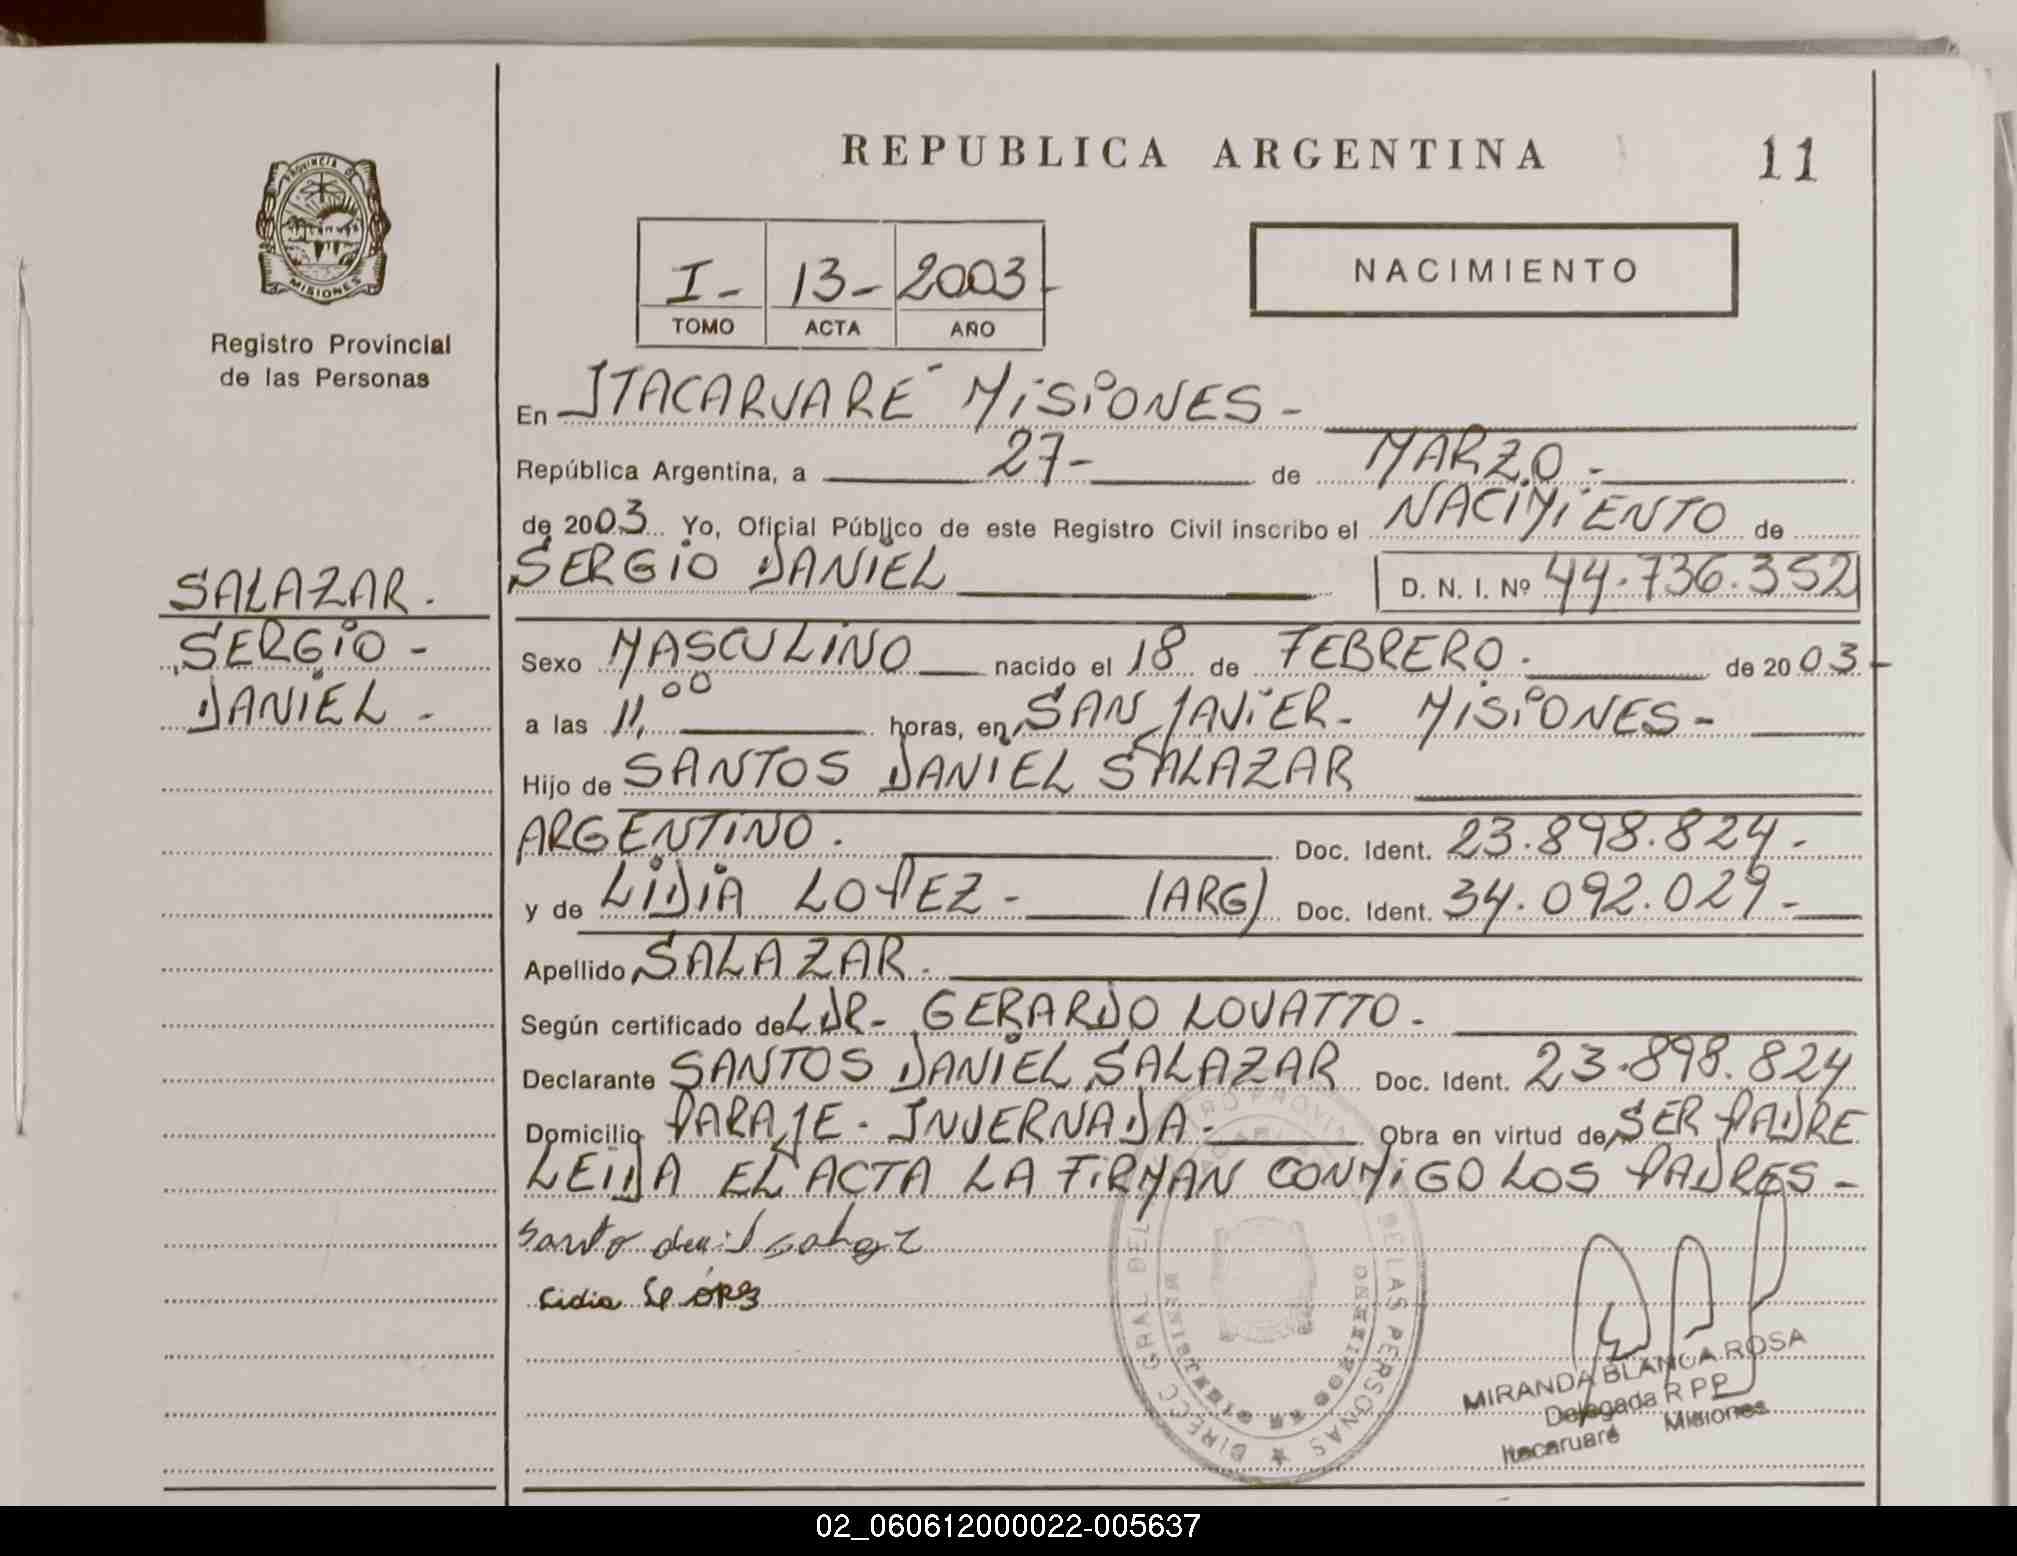 REPUBLICA ARGENTINA
11
PROVINCIA DE
MISIONES
Registro Provincial
de las Personas
I- 13- 2003-
TOMO ACTA AÑO
NACIMIENTO
En ITACARUARE MISIONES-
República Argentina, a 27- de MARZO-
de 2003 Yo, Oficial Público de este Registro Civil inscribo el NACIMIENTO de
SERGIO DANIEL D. N. I. Nº 44.736.352
SALAZAR.
SERGIO-
DANIEL-
Sexo MASCULINO nacido el 18 de FEBRERO. de 2003-
a las 11,00 horas, en SAN JAVIER- MISIONES-
Hijo de SANTOS DANIEL SALAZAR
ARGENTINO. Doc. Ident. 23.898.824-
y de LIDIA LOPEZ- (ARG) Doc. Ident. 34.092.029-
Apellido SALAZAR.
Según certificado de DR- GERARDO LOVATTO-
Declarante SANTOS DANIEL SALAZAR Doc. Ident. 23.898.824
Domicilio PARAJE- INVERNADA- Obra en virtud de SER PADRE
LEIDA EL ACTA LA FIRMAN CONMIGO LOS PADRES-
Lidia López
DIRECC GRAL DEL PROVIN DE LAS PERSONAS
MIRANDA BLANCA ROSA
Delegada R P P
Itacaruaré Misiones
02_060612000022-005637